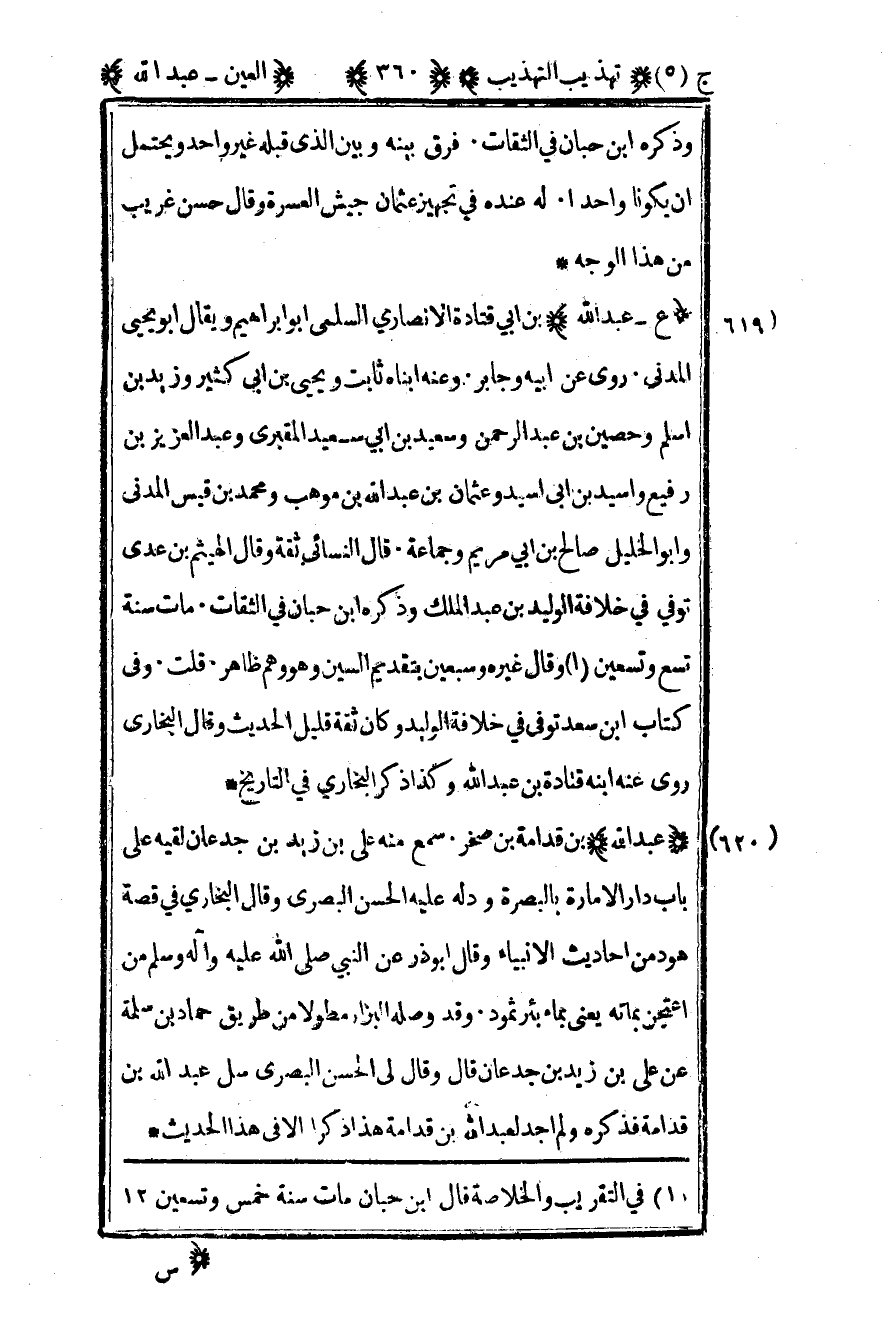 ج (٥) ﴿ تهذيب التهذيب ﴾ ﴿ ٣٦٠ ﴾ ﴿ العين - عبد الله ﴾
وذكره ابن حبان في الثقات ٠ فرق بينه وبين الذى قبله غير واحد ويحتمل
ان يكونا واحدا ٠ له عنده في تجهيز عثمان جيش العسرة وقال حسن غريب
من هذا الوجه *
(٦١٩ ﴿ ع - عبد الله ﴾ بن ابي قتادة الانصاري السلمى ابو ابراهيم ويقال ابو يحيى
المدنى ٠ روى عن ابيه وجابر ٠ وعنه ابناه ثابت ويحيى بن ابي كثير وزيد بن
اسلم وحصين بن عبد الرحمن وسعيد بن ابي سعيد المقبرى وعبد العزيز بن
رفيع واسيد بن ابى اسيد وعثمان بن عبد الله بن موهب ومحمد بن قيس المدنى
وابو الخليل صالح بن ابي مريم وجماعة ٠ قال النسائى ثقة وقال الهيثم بن عدى
توفي في خلافة الوليد بن عبد الملك وذكره ابن حبان في الثقات ٠ مات سنة
تسع وتسعين (١) وقال غيره وسبعين بتقديم السين وهو وهم ظاهر ٠ قلت ٠ وفى
كتاب ابن سعد توفى في خلافة الوليد وكان ثقة قليل الحديث وقال البخارى
روى عنه ابنه قتادة بن عبد الله وكذا ذكر البخاري في التاريخ *
(٦٢٠) ﴿ عبد الله ﴾ بن قدامة بن صخر ٠ سمع منه على بن زيد بن جدعان لقيه على
باب دار الامارة بالبصرة ودله عليه الحسن البصرى وقال البخاري في قصة
هود من احاديث الانبياء وقال ابوذر عن النبي صلى الله عليه وآله وسلم من
اعتجن بمائه يعنى بماء بئر ثمود ٠ وقد وصله البزار مطولا من طريق حماد بن سلمة
عن على بن زيد بن جدعان قال وقال لى الحسن البصرى سل عبد الله بن
قدامة فذكره ولم اجد لعبد الله بن قدامة هذا ذكرا الا فى هذا الحديث *
(١) في التقريب والخلاصة قال ابن حبان مات سنة خمس وتسعين ١٢
﴿ س